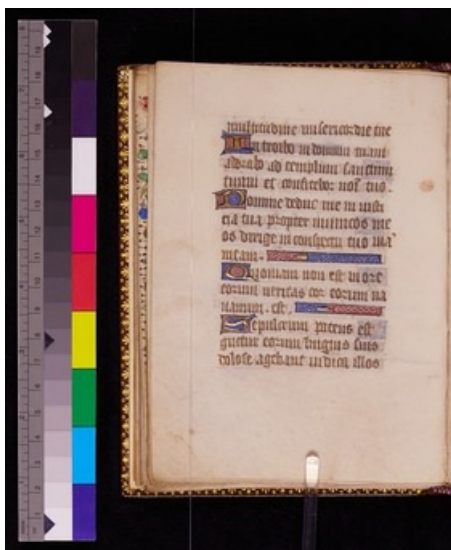 multitudine misericordie tue
Introibo in domum tuam
adorabo ad templum sanctum
tuum et confitebor no tuo.
Domine deduc me in iusti
cia tua propter inimicos me
os dirige in conspectu tuo uia
meam.
Quoniam non est in ore
eorum ueritas cor eorum ua
num est.
Sepulcrum patens est
guttur eorum linguis suis
dolose agebant iudica illos